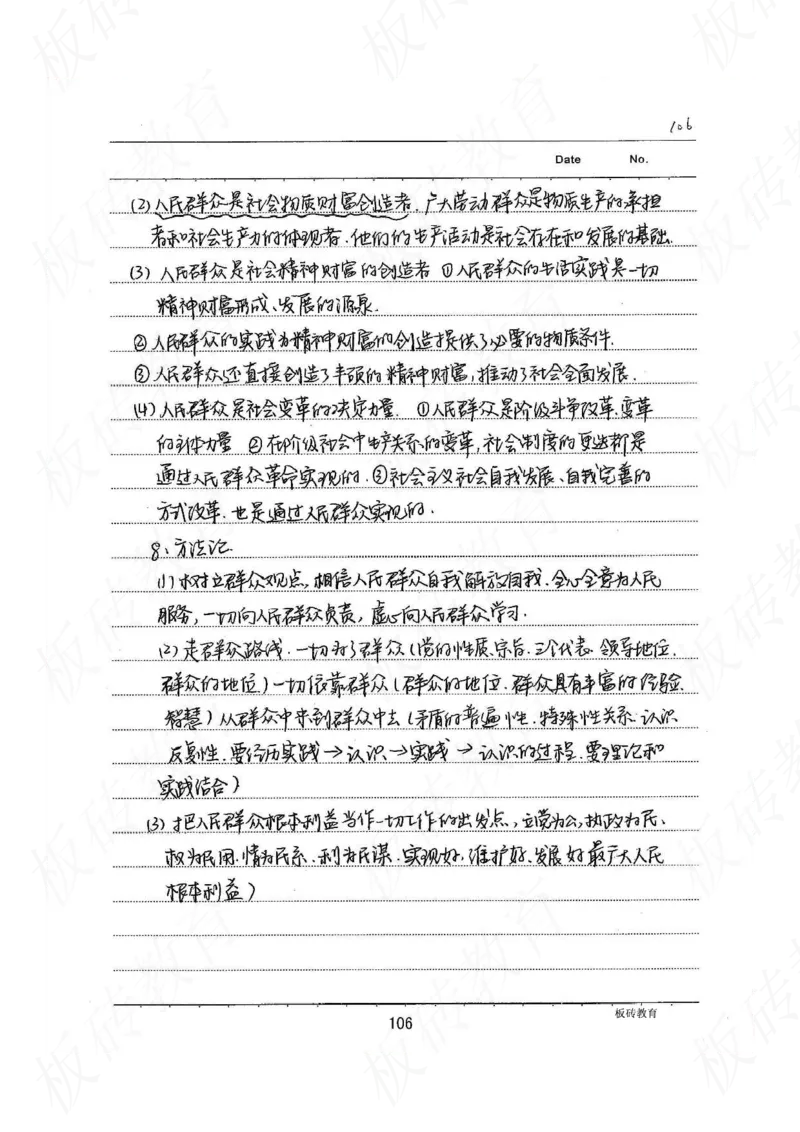 106
Date No.
(2)人民群众是社会物质财富创造者，广大劳动群众是物质生产的承担
者和社会生产力的体现者，他们的生产活动是社会存在和发展的基础.
(3) 人民群众是社会精神财富的创造者 ①人民群众的生活实践是一切
精神财富形成、发展的源泉.
②人民群众的实践为精神财富的创造提供了必要的物质条件.
③人民群众还直接创造了丰硕的精神财富,推动了社会全面发展.
(4)人民群众是社会变革的决定力量. ①人民群众是阶级斗争改革、变革
的主体力量 ②在阶级社会中生产关系的变革,社会制度的更迭都是
通过人民群众革命实现的.③社会主义社会自我发展、自我完善的
方式改革.也是通过人民群众实现的.
8、方法论
(1)树立群众观点,相信人民群众自我解放自我、全心全意为人民
服务,一切向人民群众负责,虚心向人民群众学习.
(2)走群众路线.一切为了群众(党的性质、宗旨、三个代表、领导地位.
群众的地位)一切依靠群众(群众的地位、群众具有丰富的经验.
智慧)从群众中来到群众中去(矛盾的普遍性、特殊性关系、认识
反复性.要经历实践→认识→实践→认识的过程.要理论和
实践结合)
(3)把人民群众根本利益当作一切工作的出发点,立党为公,执政为民、
权为民用、情为民系、利为民谋、实现好、维护好、发展好最广大人民
根本利益)
106
板砖教育